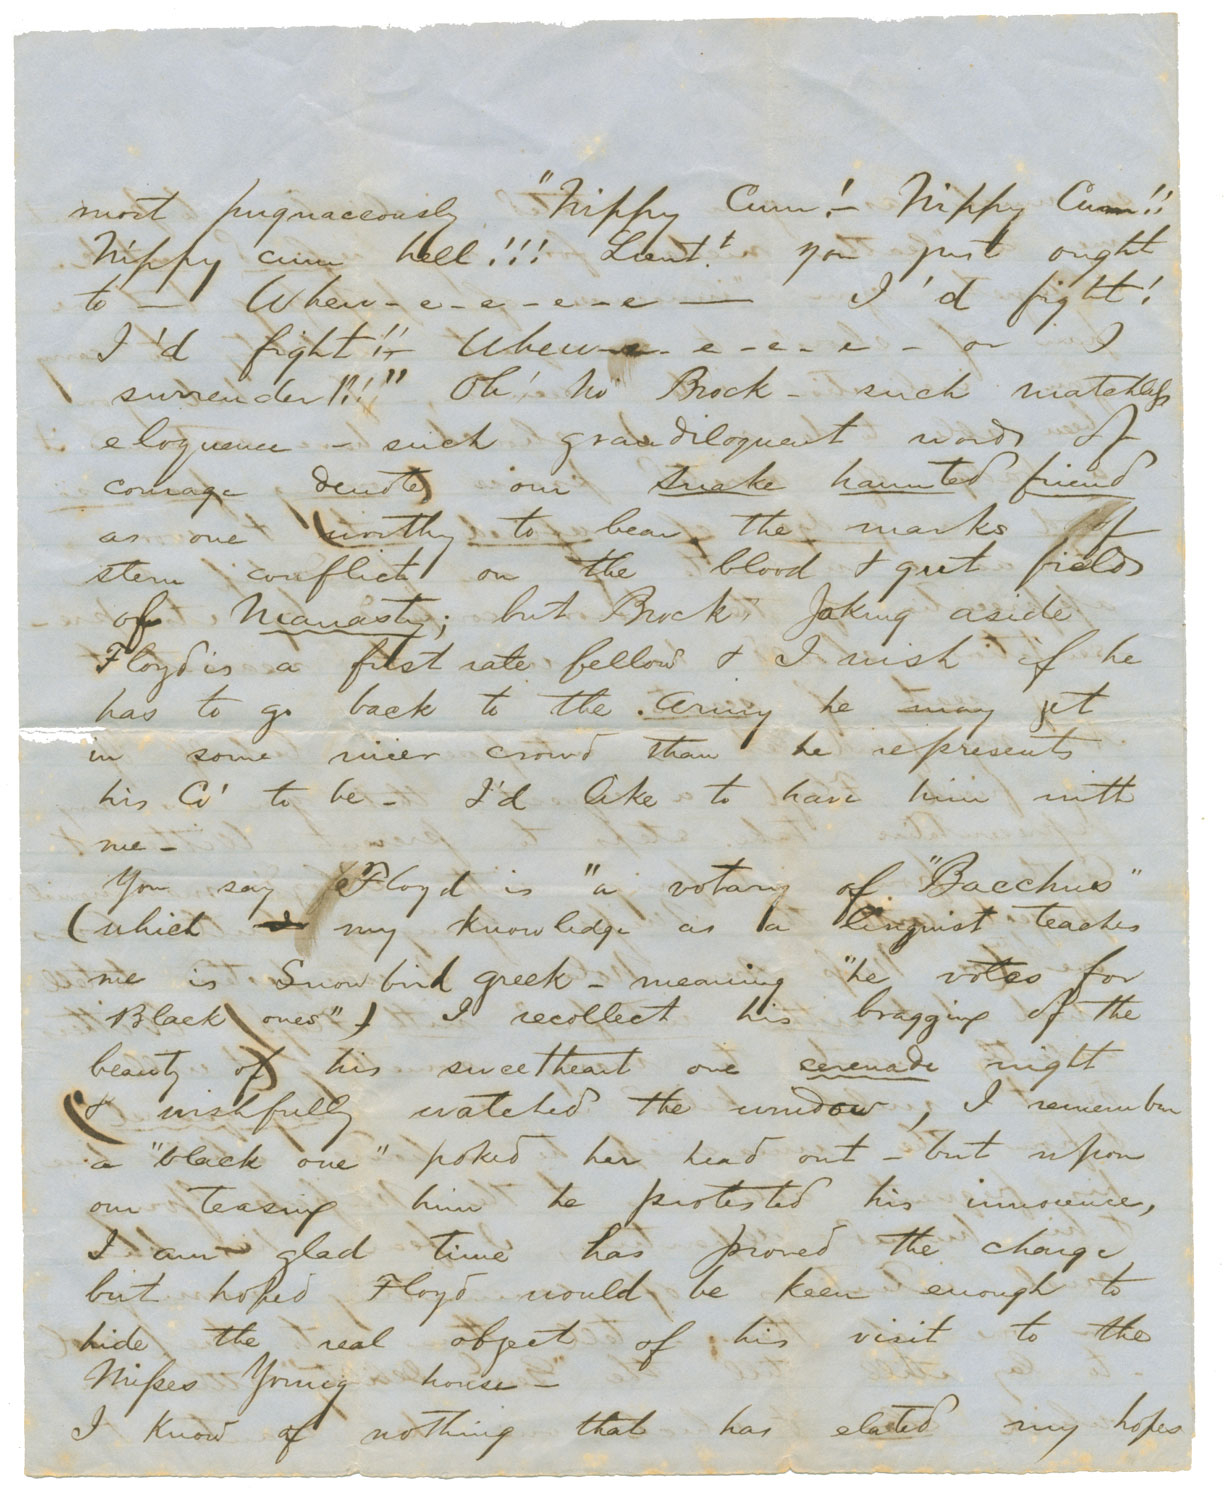 most pugnaceously "Nippy Cum!– Nippy Cum!!
Nippy cum hell!!! Lieut! you just ought
to — Whew-e-e-e-e-e — I'd fight!
I'd fight!!– Whew-e-e-e-e- or I
surrender!!!" Oh! no Brock – such matchless
eloquence – such grandiloquent words of
courage denotes our snake haunted friend
as one worthy to bear the marks of
stern conflict on the blood & gut fields
of Manasty; but Brock Joking aside
Floyd is a first rate fellow & I wish if he
has to go back to the army he may get
in some nicer crowd than he represents
his Co' to be – I'd like to have him with
me –
You say Floyd is "a votary of "Bacchus"
(which my knowledge as a linguist teaches
me is Snowbird greek – meaning "he votes for
Black ones") I recollect his bragging of the
beauty of his sweetheart one serenade night
& wishfully watched the window, I remember
a "black one" poked her head out – but upon
our teasing him he protested his innocence,
I am glad time has proved the charge
but hoped Floyd would be keen enough to
hide the real object of his visit to the
Misses Young house –
I know of nothing that has elated my hopes